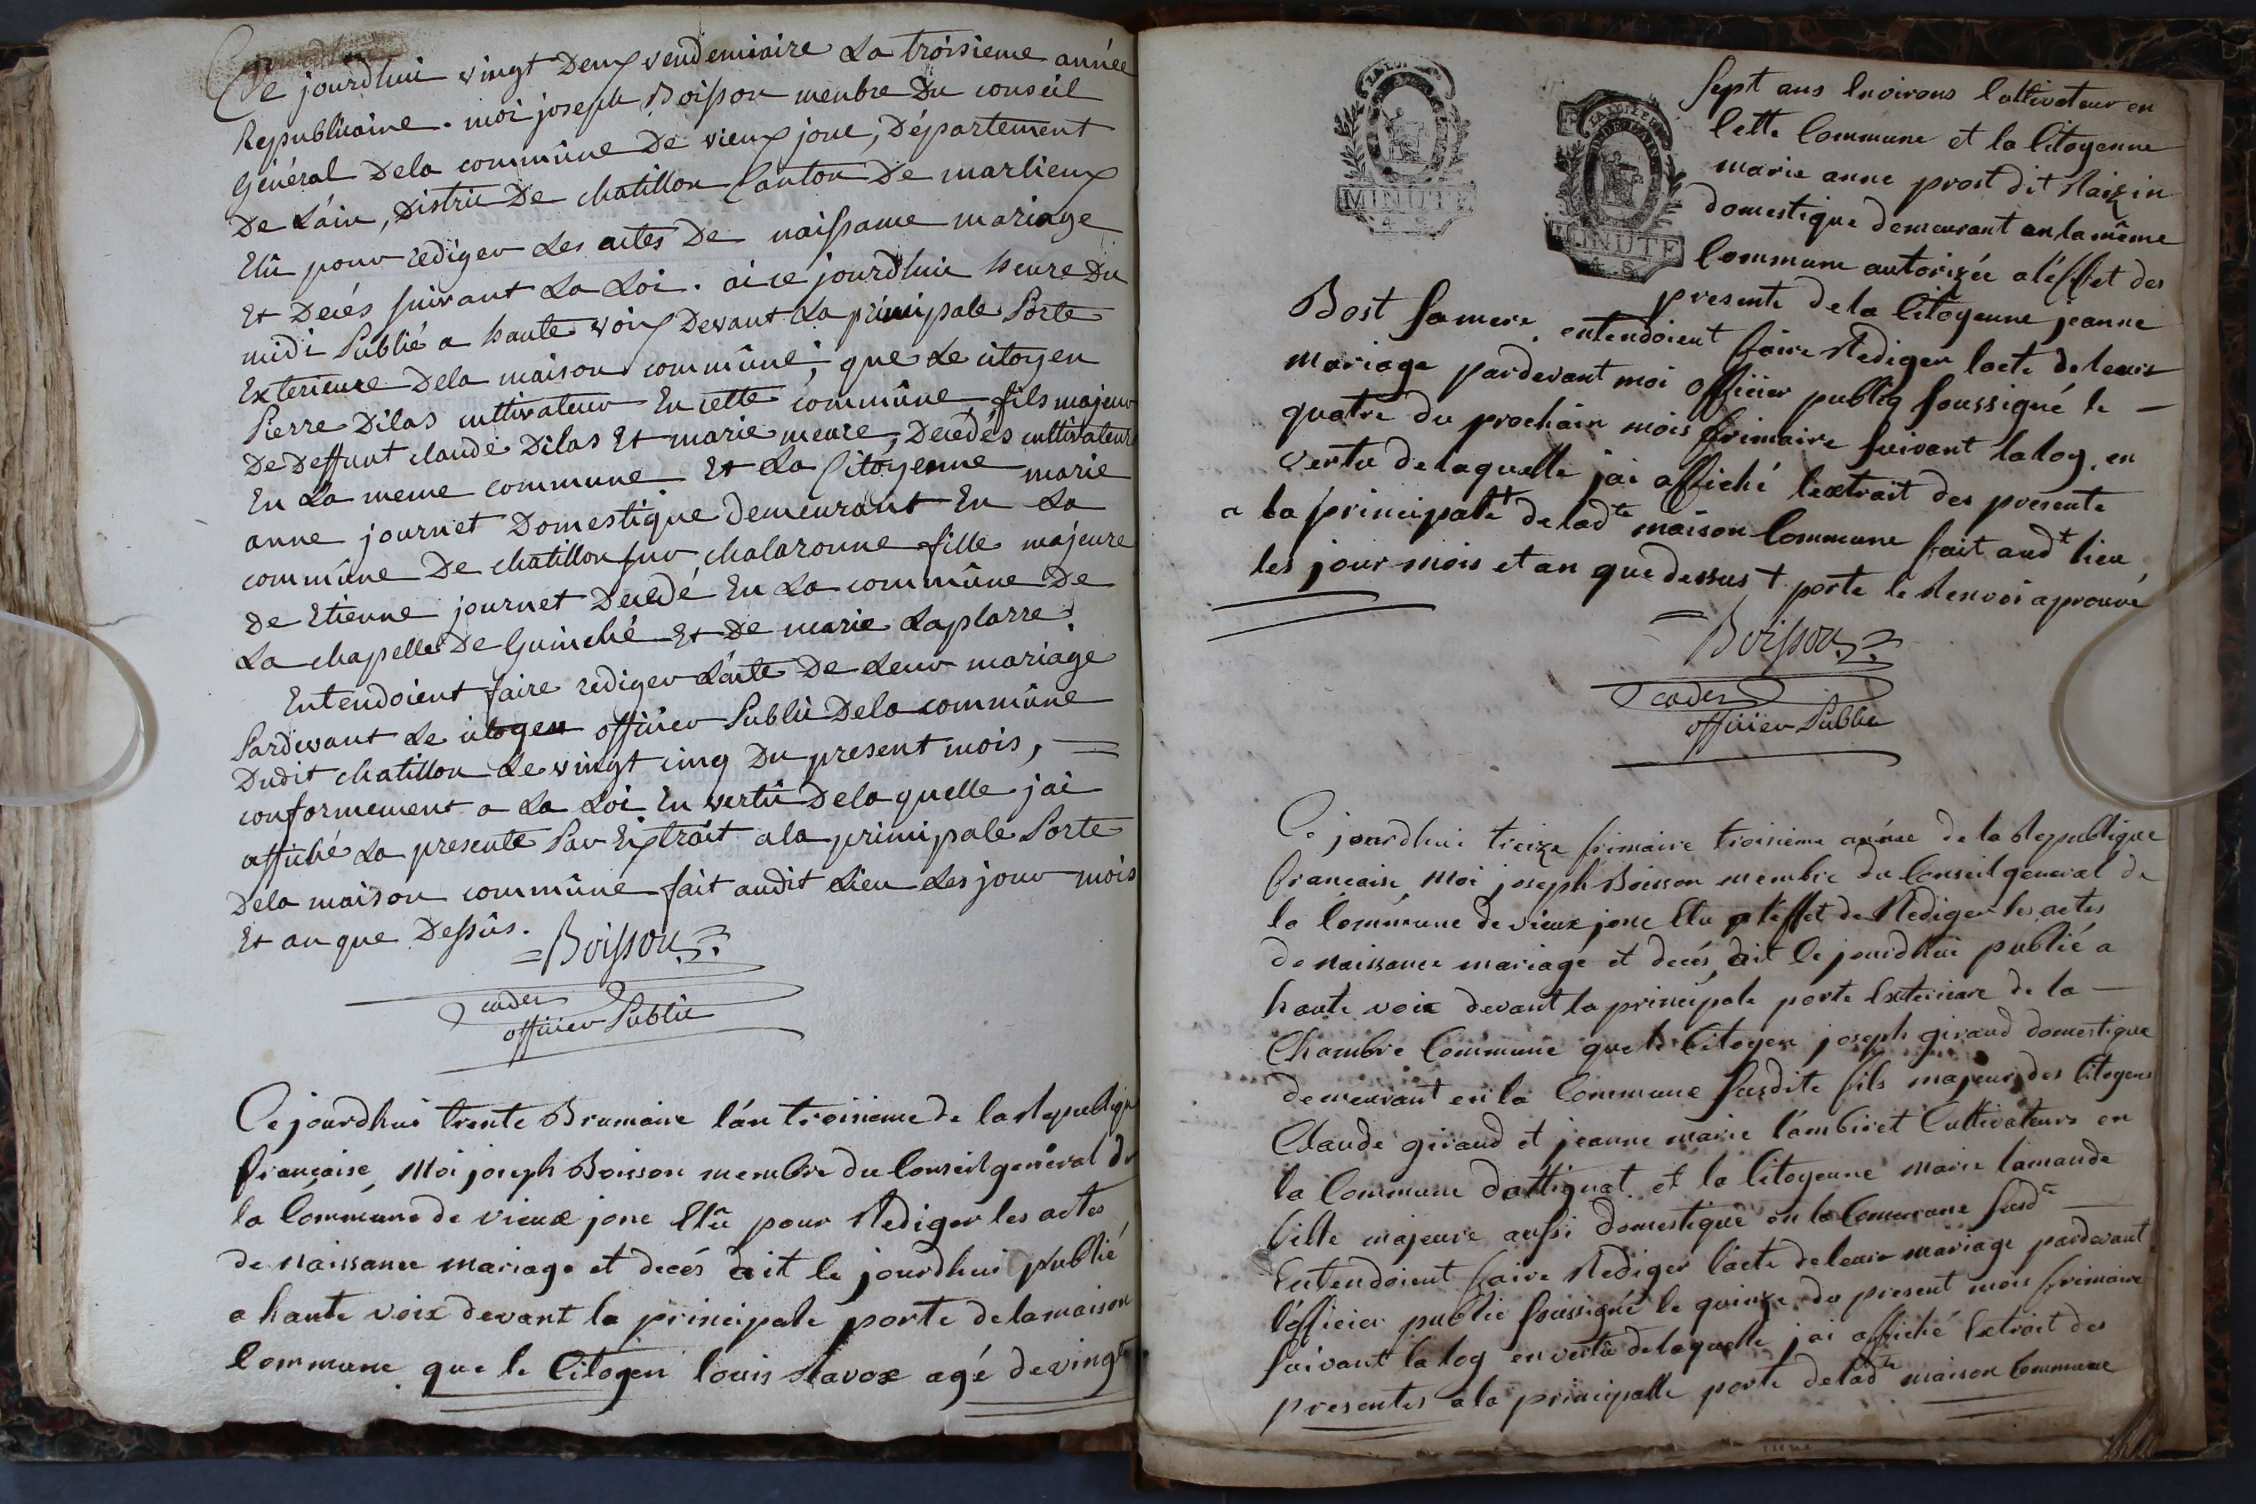 Ce jourdhui vingt Deux vendemiaire La troisieme année
Republicaine. moi joseph Boisson menbre Du conseil
Général Dela commûne De vieux jonc, Département
De L'ain, District De chatillon Canton De marlieux
Elû pour rediger Les actes De naissance mariage
Et Decés suivant La Loi. ai ce jourdhui heure Du
midi Publié a haute voix Devant La principale Porte
Exterieure Dela maison commûne; que Le citoyen
Pierre Dilas cultivateur En cette commûne fils majeur
De Deffunt claude Dilas Et marie meure, Decedés cultivateurs
En La meme commune Et La Citoyenne marie
anne journet Domestique demeurant En La
commûne De chatillon sur chalaronne fille majeure
De Etienne journet Decedé En La commûne De
La chapelle De Guinché Et De marie Laplarre.
Entendoient faire rediger L'acte De Leur mariage
Pardevant Le citoyen officier Public Dela commûne
Dudit chatillon Le vingt cinq Du present mois,
conformement a La Loi En vertû Dela quelle jai
affiché La presente Par Extrait ala principale Porte
Dela maison commûne fait audit Lieu Les jour mois
Et an que Dessûs.
Boisson
officier Public
Ce jourdhui trente Brumaire l'an troisieme de la Republique
française, Moi joseph Boisson membre du Conseil general de
la Commune de vieux jonc Elû pour Rediger les actes
de naissance mariage et decés ait le jourdhui publié
a haute voix devant la principale porte de la maison
Commune que le Citoyen louis Ravox agé de vingt
MINUTE
MINUTE
sept ans Environs Cultivateur en
Cette Commune et la Citoyenne
marie anne prost dit Raizin
domestique demeurant en la même
Commune autorizée a l'éffet des
presente de la Citoyenne jeanne
Bost sa mere entendoient faire Rediger lacte de leur
mariage pardevant moi officier publiq soussigné le
quatre du prochain mois frimaire suivant la loy, en
vertu de laquelle jai affiché l'extrait des presente
a la principale + de lad.te maison Commune fait aud.t lieu
les jour mois et an que dessus + porte le Renvoi aprouvé
Boisson
officier Public
Ce jourdhui treize frimaire troisieme année de la Republique
francaise Moi joseph Boisson membre du Conseil general de
la Commune de vieux jonc Elu a l'effet de Rediger les actes
de naissance mariage et decés, ait Ce jourdhui publié a
haute voix devant la principale porte Exterieure de la
Chambre Commune que le Citoyen joseph giraud domestique
demeurant en la Commune susdite fils majeur des Citoyens
Claude giraud et jeanne marie l'ambiret Cultivateurs en
la Commune dattignat et la Citoyenne marie lamande
fille majeure aussi domestique en la Commune susd.te
Entendoient faire Rediger l'acte de leur mariage pardevant
l'officier public soussigné le quinze du present mois frimaire
suivant la loy en vertu de laquelle jai affiché Extrait des
presentes a la principalle porte de lad.te maison Commune